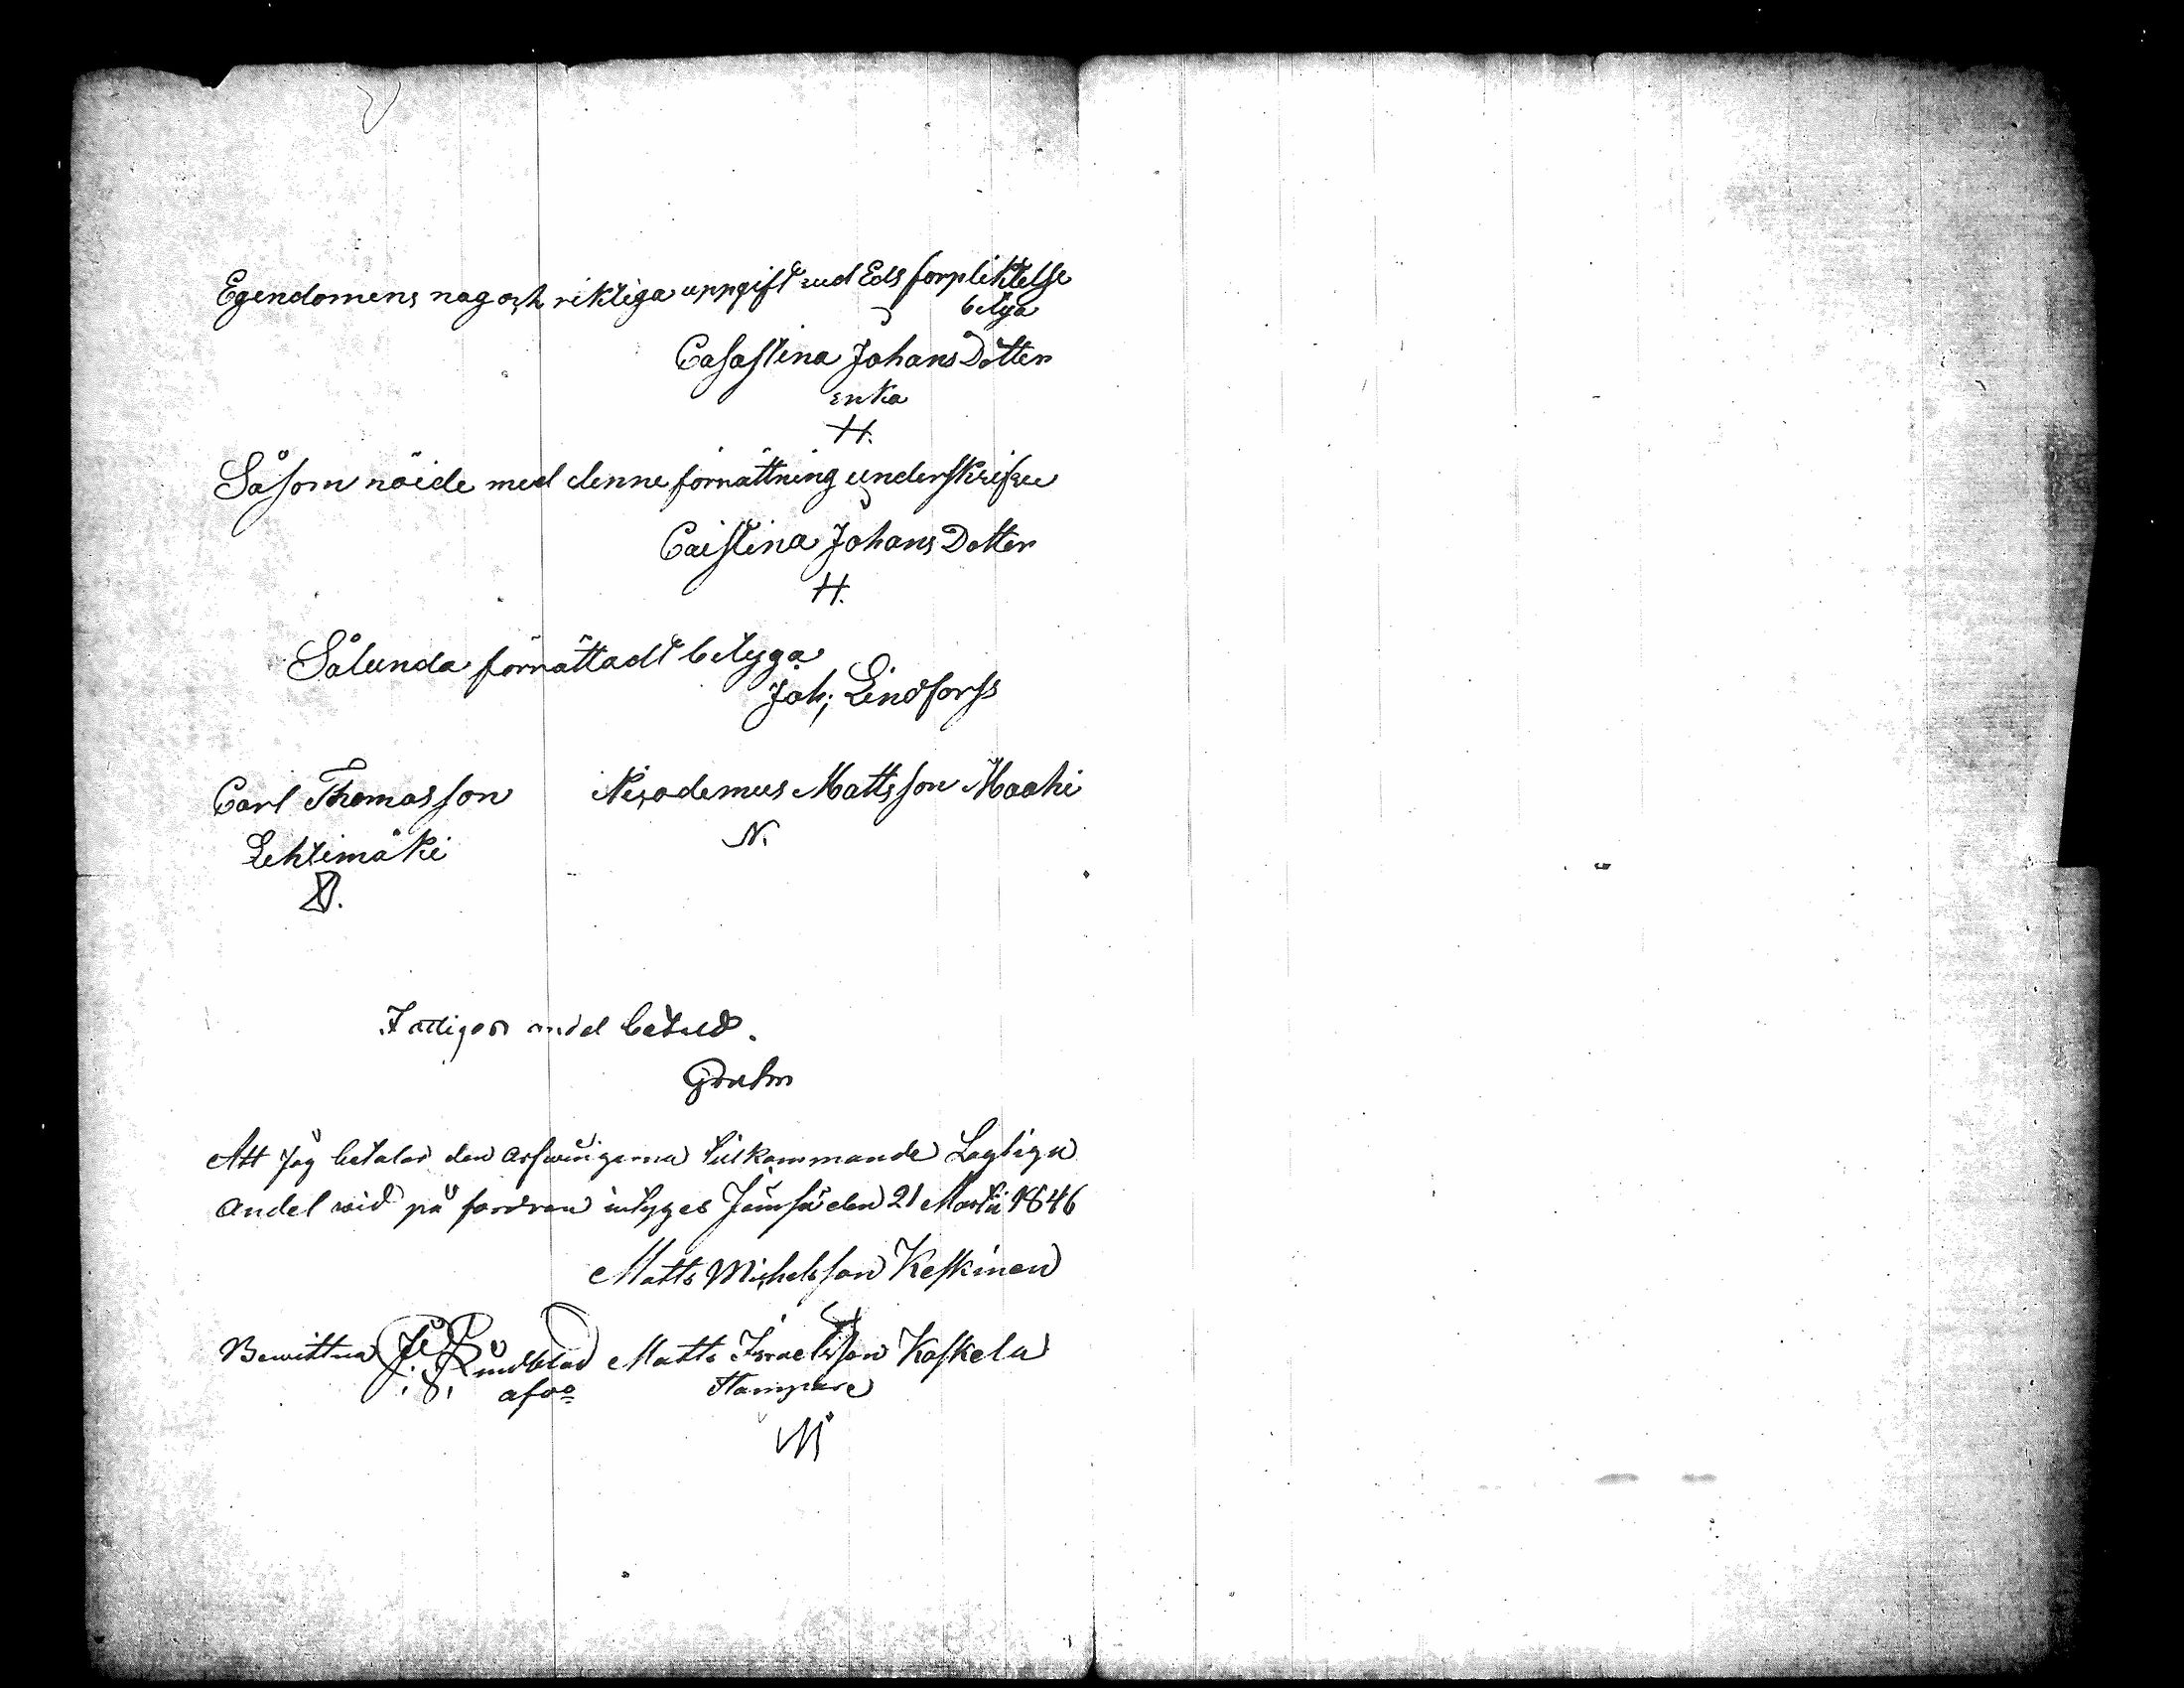 Egendomens nog och riktiga uppgift med Eds forpliktelse
betyga
Casastina Johans Dotter
enka
H.
Såsom nöide med denne förrättning underskrifver
Caistina Johans Dotter
H.
Sålunda förrättadt betyga
Joh; Lindforss
Carl Thomasson Nicodemus Mattsson Maahi
Lehtimäki N.
Fattigas andel betald.
Att jag betalar den arfwingarna tillkommande Lagliga
andel wid på fordran intyges Jämsä den 21 Martii 1846
Matts Michelsson Keskinen
Bewittna Matts Israelsson Koskela
Stampare
M